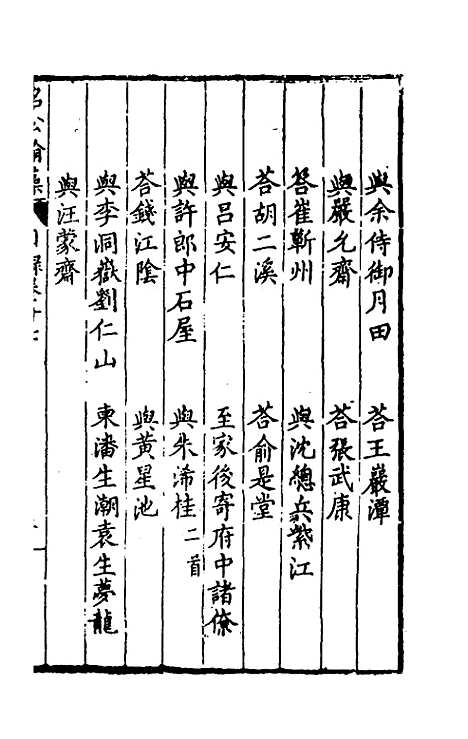 與余侍御月田
荅王巖潭
與嚴允齋
荅張武康
荅崔蘄州
與沈總兵紫江
荅胡二溪
荅俞是堂
與呂安仁
至家後寄府中諸僚
與許郎中石屋
與朱浠桂二首
荅錢江陰
與黃星池
與李洞嶽劉仁山
東潘生潮袁生夢龍
與汪蒙齋
名公翰藻
目錄卷十七